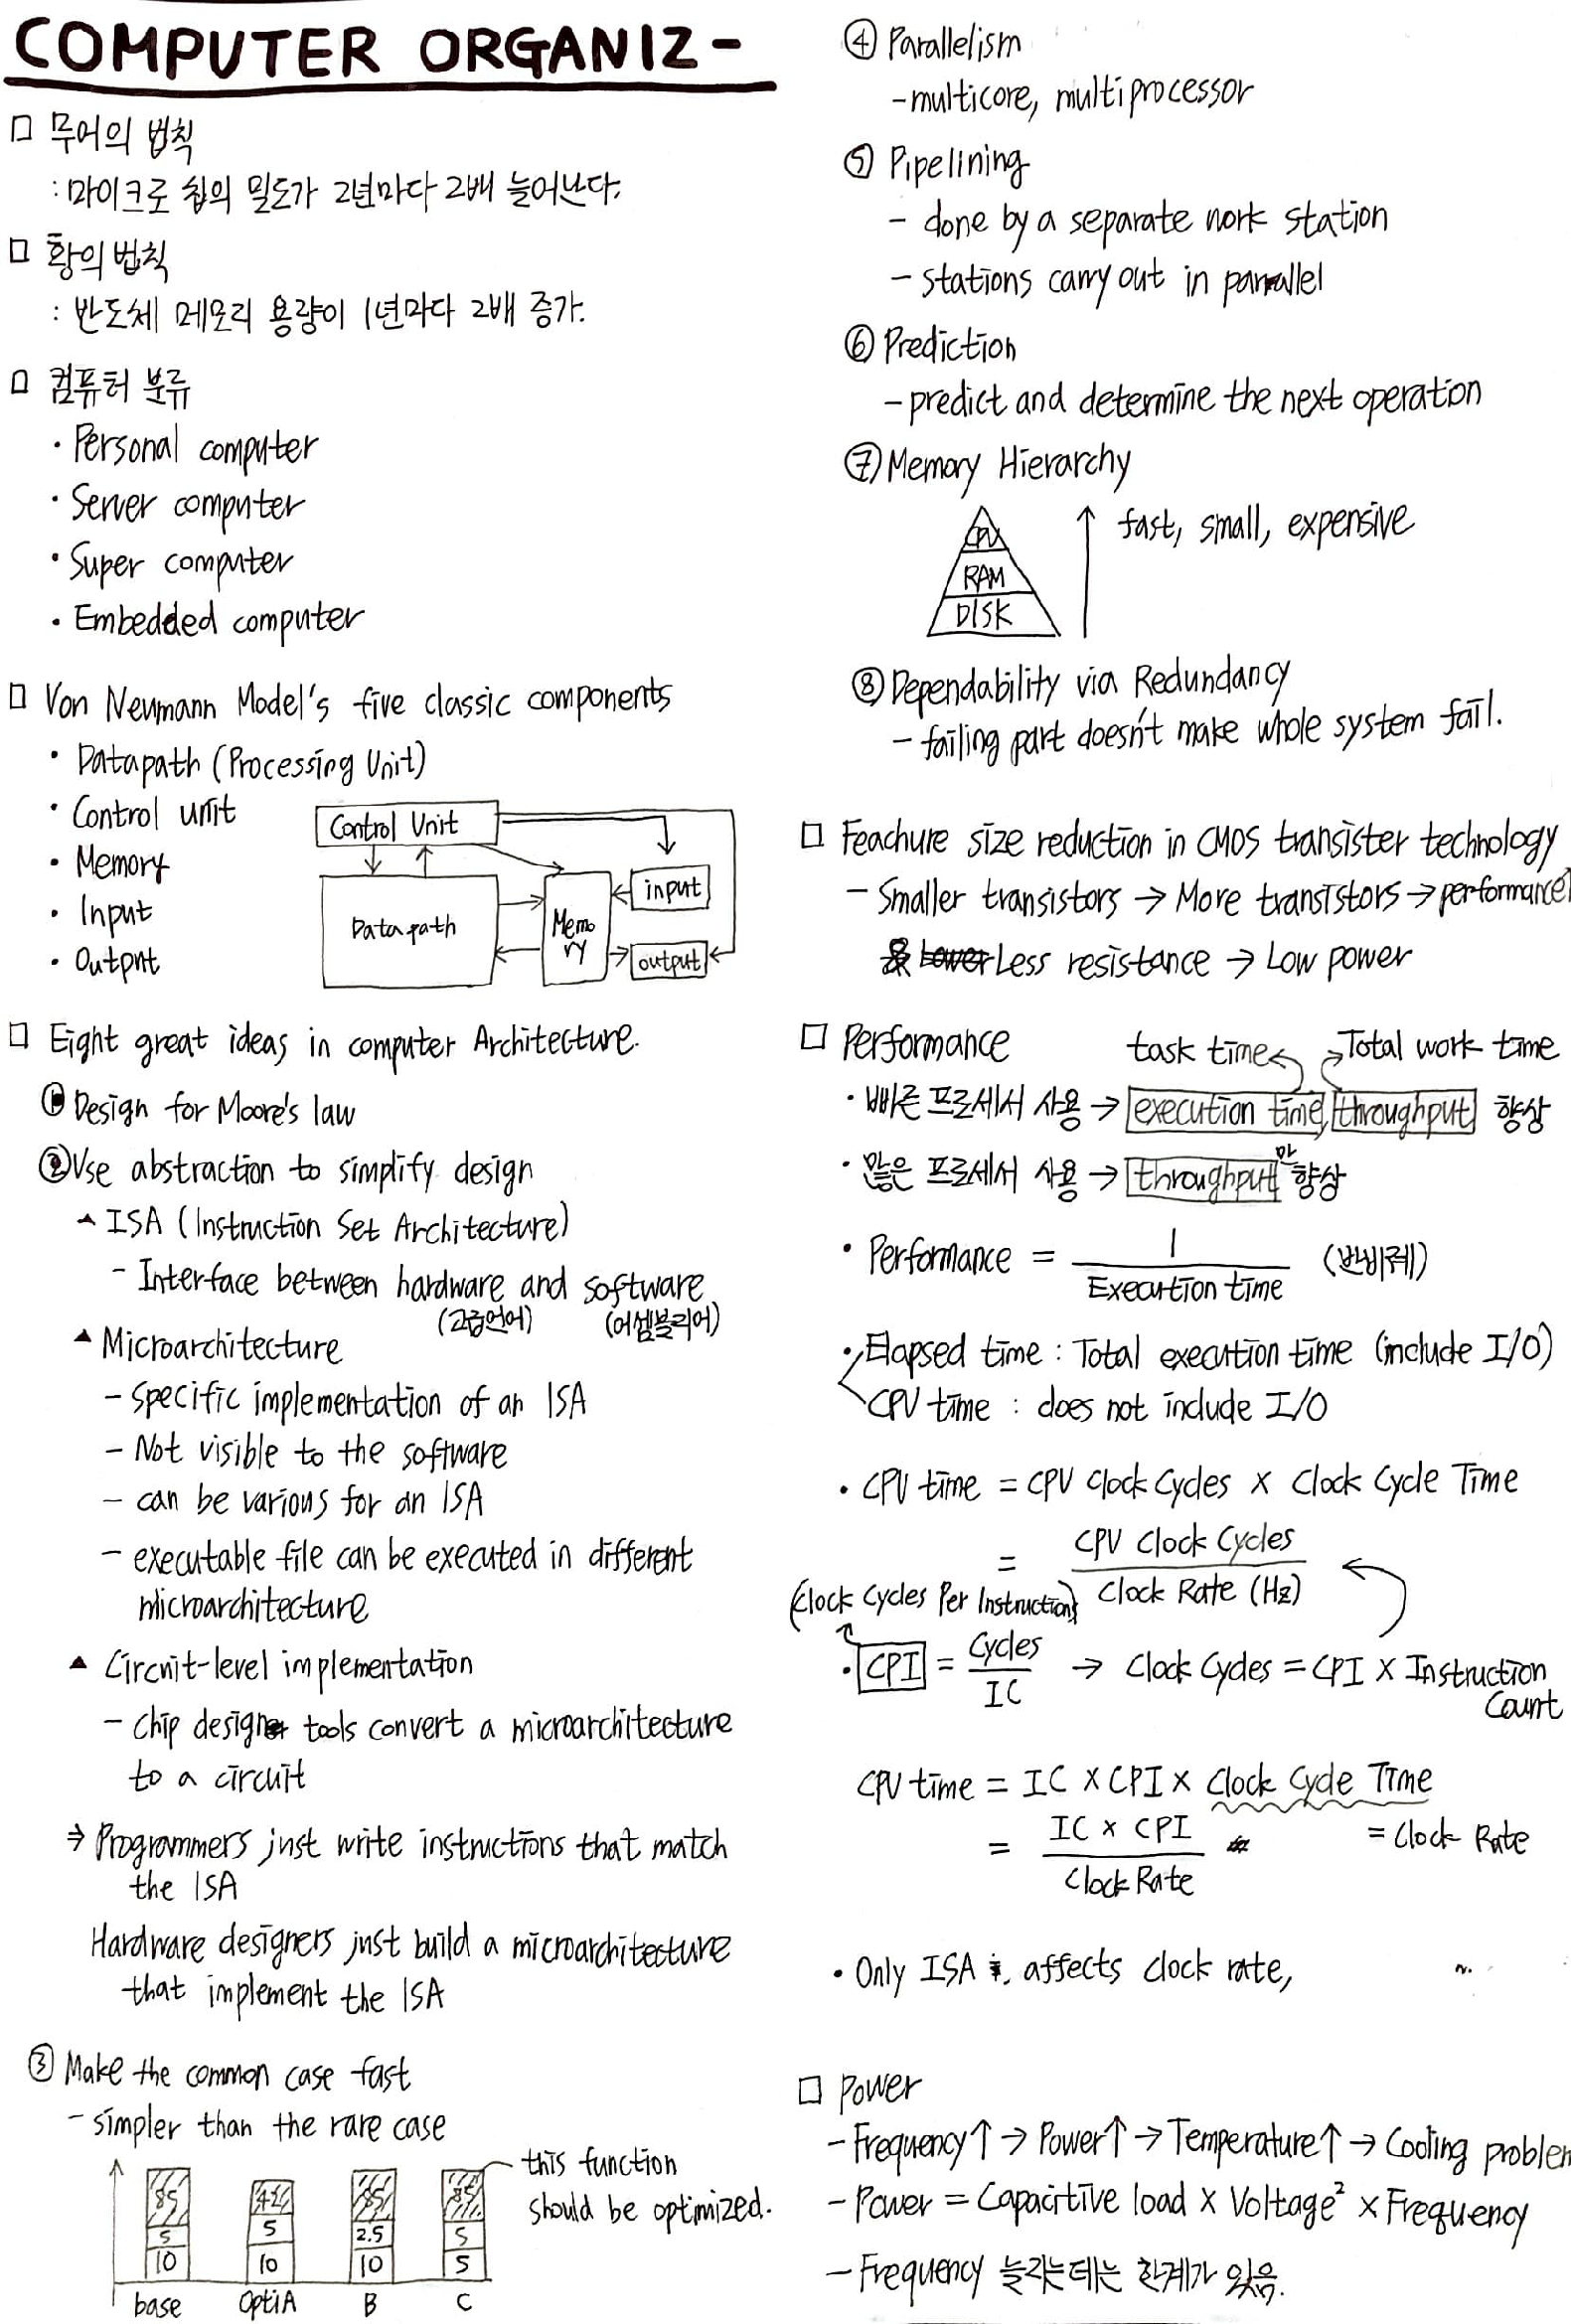 COMPUTER ORGANIZ-
□ 무어의 법칙
: 마이크로 칩의 밀도가 2년마다 2배 늘어난다.
□ 황의 법칙
: 반도체 메모리 용량이 1년마다 2배 증가.
□ 컴퓨터 분류
· Personal computer
· Server computer
· Super computer
· Embedded computer
□ Von Neumann Model's five classic components
· Datapath (Processing Unit)
· Control unit
· Memory
· Input
· Output
Control Unit
Datapath
Memo
ry
input
output
□ Eight great ideas in computer Architecture.
① Design for Moore's law
② Use abstraction to simplify design
▲ ISA (Instruction Set Architecture)
- Interface between hardware and software
(고급언어) (어셈블리어)
▲ Microarchitecture
- Specific implementation of an ISA
- Not visible to the software
- can be various for an ISA
- executable file can be executed in different
microarchitecture
▲ Circuit-level implementation
- chip design tools convert a microarchitecture
to a circuit
⇒ Programmers just write instructions that match
the ISA
Hardware designers just build a microarchitecture
that implement the ISA
③ Make the common case fast
- simpler than the rare case
this function
should be optimized.
85 85 85
5 5 2.5 5
10 10 10 5
base OptiA B C
④ Parallelism
- multicore, multiprocessor
⑤ Pipelining
- done by a separate work station
- stations carry out in parallel
⑥ Prediction
- predict and determine the next operation
⑦ Memory Hierarchy
CPU
RAM
DISK
fast, small, expensive
⑧ Dependability via Redundancy
- failing part doesn't make whole system fail.
□ Feachure size reduction in CMOS transister technology
- Smaller transistors → More transistors → performance↑
Less resistance → Low power
□ Performance
task time Total work time
·빠른 프로세서 사용 → execution time, throughput 향상
· 많은 프로세서 사용 → throughput만 향상
· Performance = 1 / Execution time (반비례)
· Elapsed time : Total execution time (include I/O)
CPU time : does not include I/O
· CPU time = CPU Clock Cycles × Clock Cycle Time
= CPU Clock Cycles / Clock Rate (Hz)
(Clock Cycles Per Instruction)
· CPI = Cycles / IC → Clock Cycles = CPI × Instruction
Count
CPU time = IC × CPI × Clock Cycle Time
= IC × CPI / Clock Rate = Clock Rate
· Only ISA affects clock rate,
□ Power
- Frequency↑ → Power↑ → Temperature↑ → Cooling problem
- Power = Capacitive load × Voltage² × Frequency
- Frequency 늘리는데는 한계가 있음.